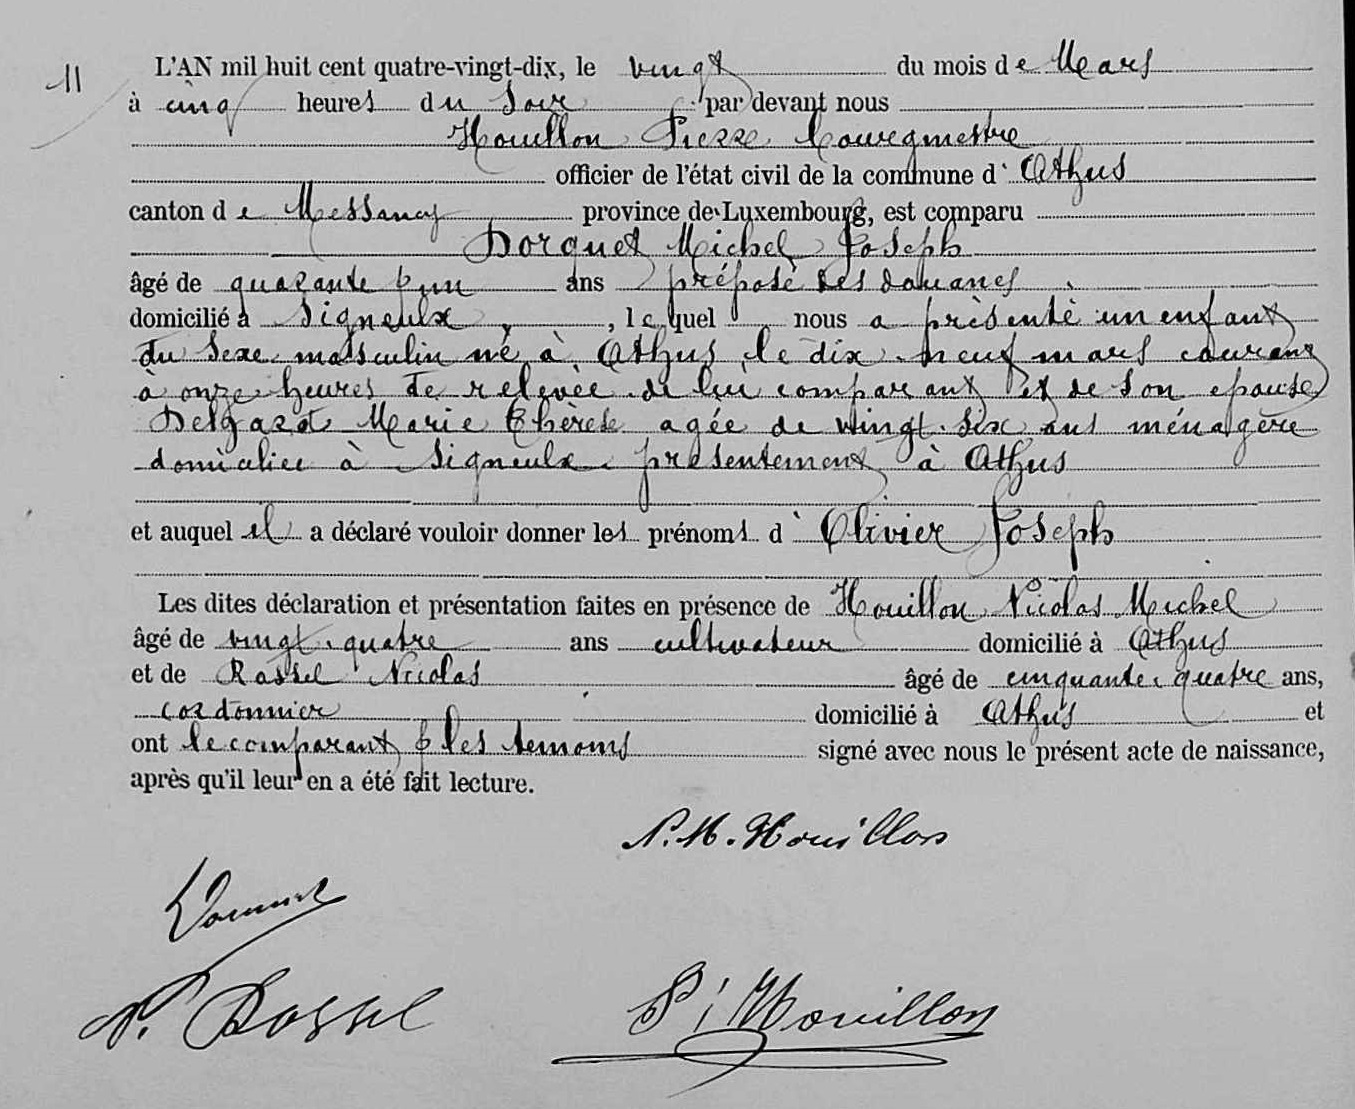 11
L'AN mil huit cent quatre-vingt-dix, le vingt du mois de Mars
à cinq heures du soir par devant nous
Houillon Pierre bourgmestre
officier de l'état civil de la commune d'Athus
canton de Messancy province de Luxembourg, est comparu
Dorquet Michel Joseph
âgé de quarante & un ans préposé des douanes
domicilié à Signeulx, lequel nous a présenté un enfant
du sexe masculin né à Athus le dix-neuf mars courant
à onze heures de relevée de lui comparant et de son épouse
Delgard Marie Thérèse agée de vingt-six ans ménagère
domiciliée à Signeulx présentement à Athus
et auquel il a déclaré vouloir donner les prénoms d'Olivier Joseph
Les dites déclaration et présentation faites en présence de Houillon Nicolas Michel
âgé de vingt-quatre ans cultivateur domicilié à Athus
et de Rossel Nicolas âgé de cinquante-quatre ans,
cordonnier domicilié à Athus et
ont le comparant & les temoins signé avec nous le présent acte de naissance,
après qu'il leur en a été fait lecture.
N. M. Houillon
N. Rossel P. Houillon